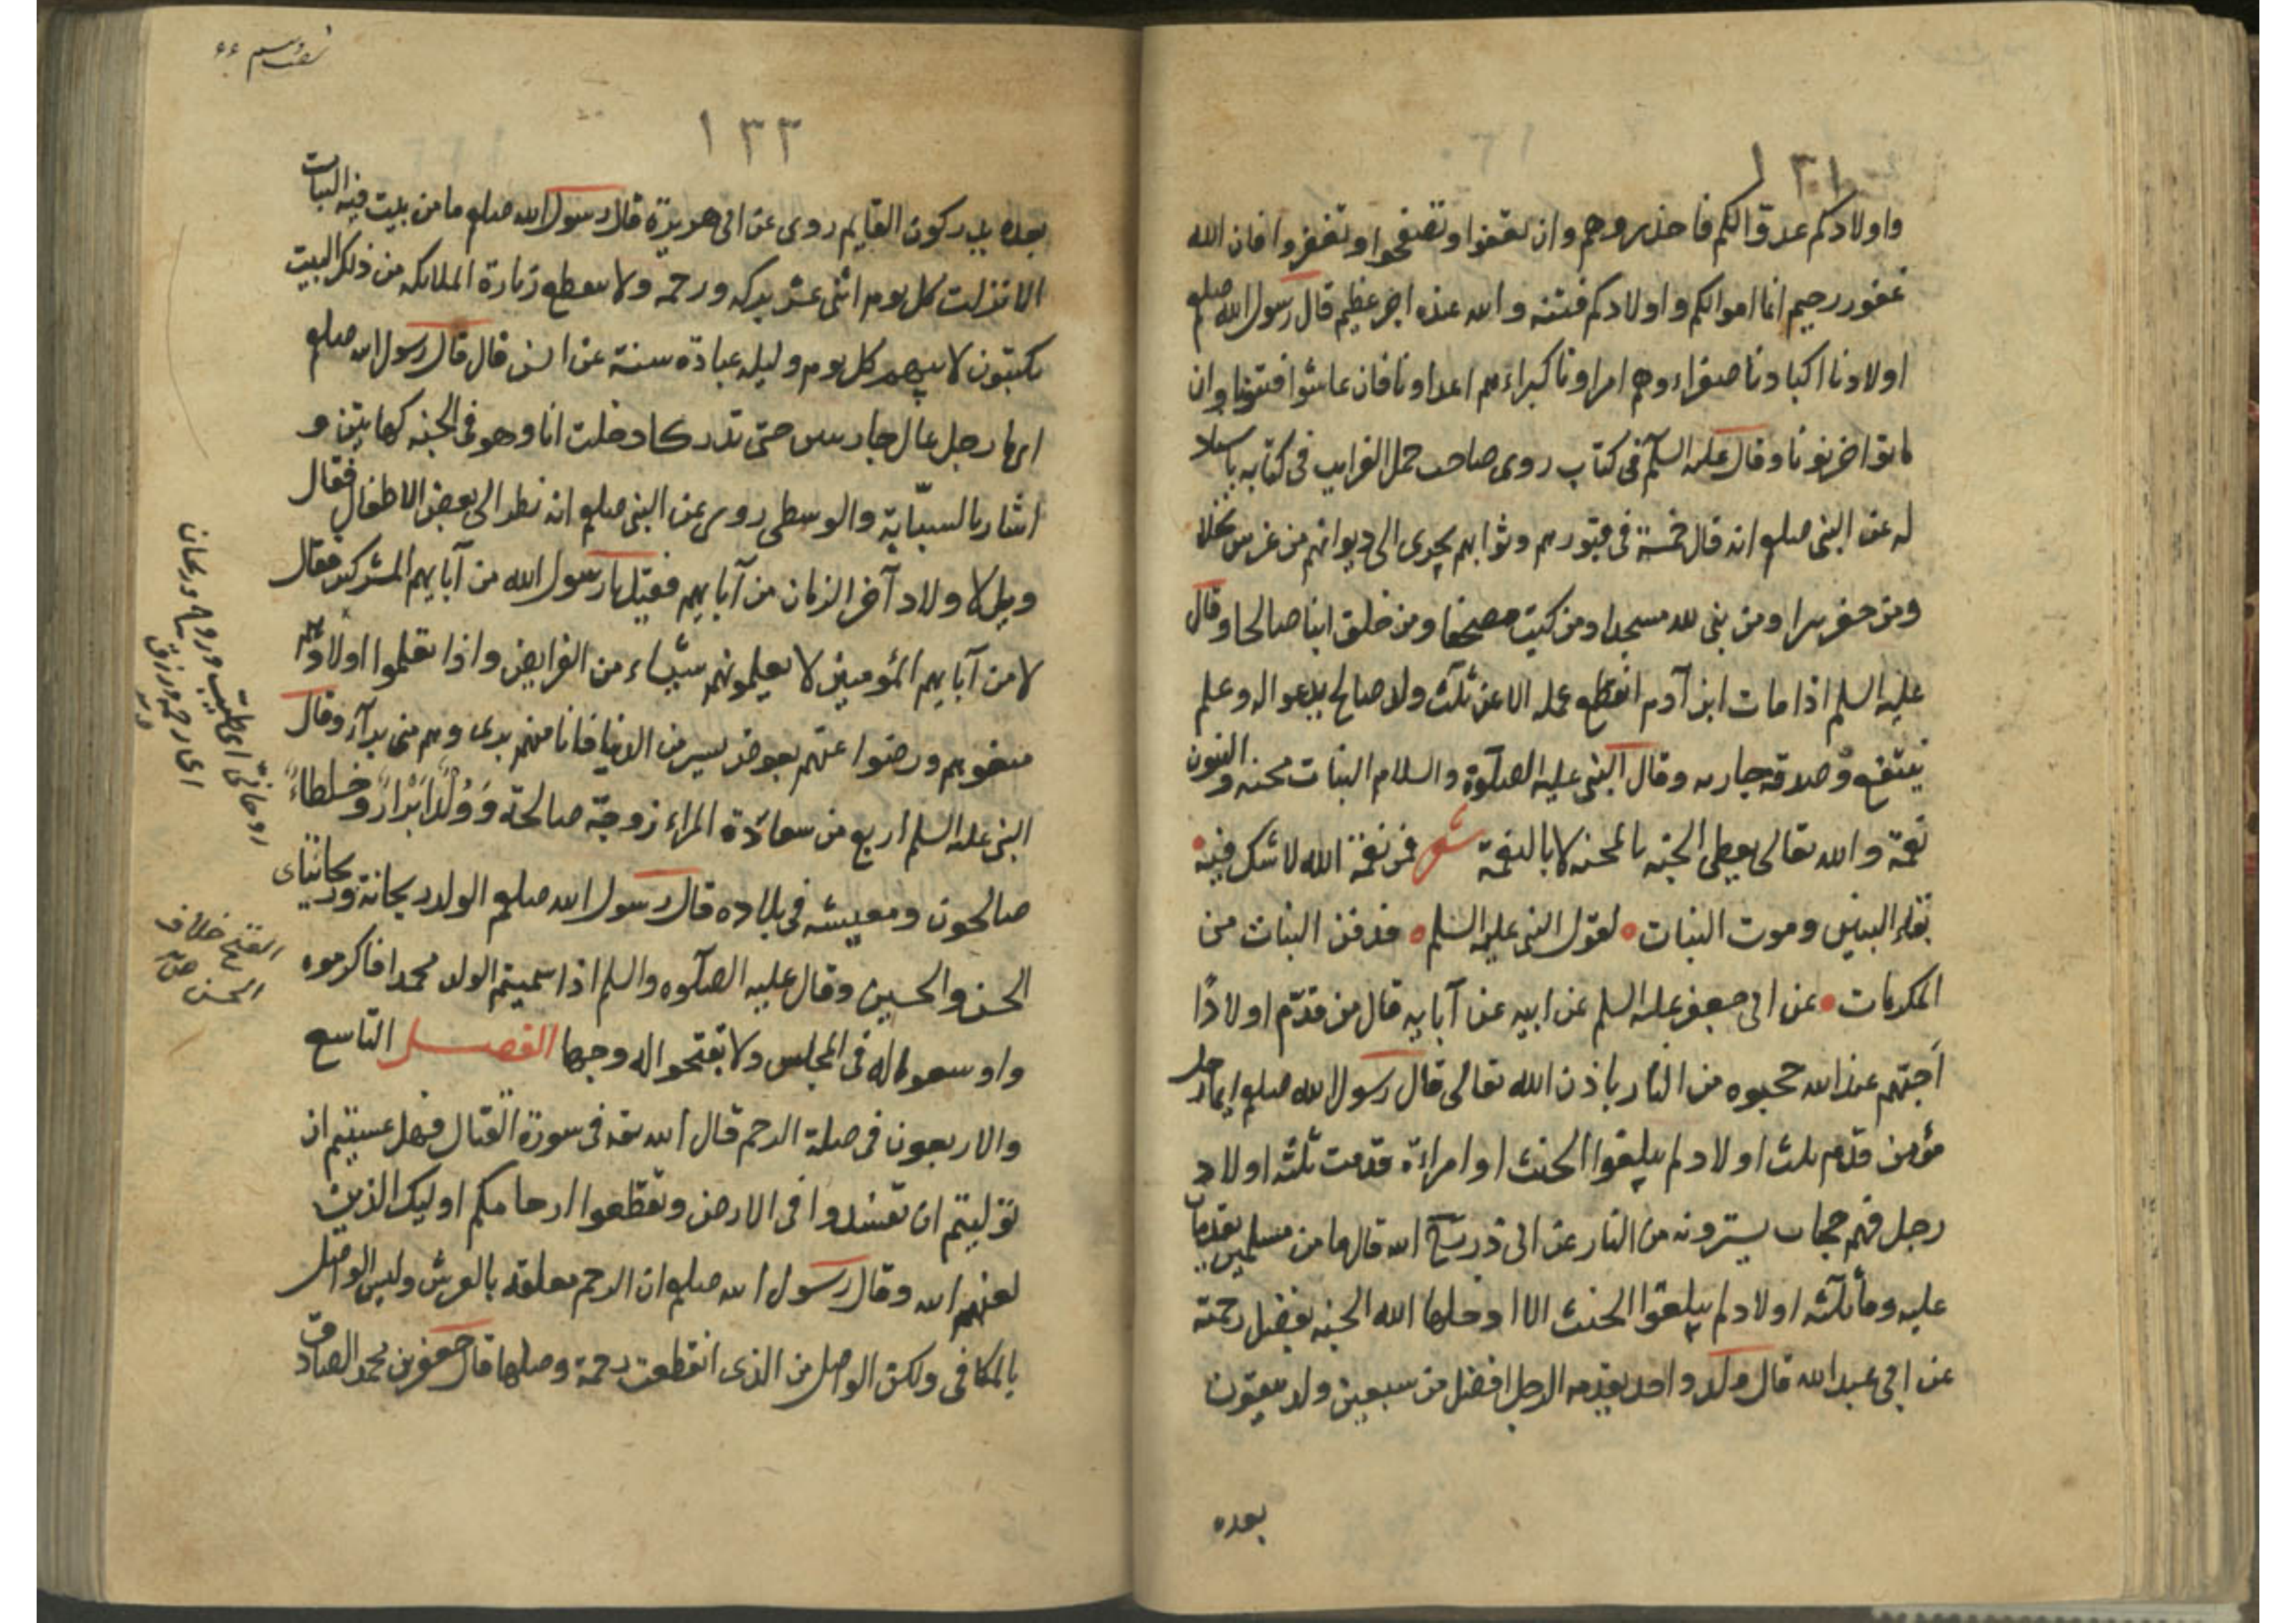 ١٣١
واولادكم عدوا لكم فاحذروهم وان تعفوا وتصفحوا وتغفروا فان الله
غفور رحيم انما اموالكم واولادكم فتنه والله عنده اجر عظيم قال رسول الله صلعم
اولادنا اكبادنا صغراءوهم امراونا كبراءهم اعداونا فان عاشوا فتنونا وان
ماتوا حزنونا وقال عليه السلم فى كتاب روى صاحب حمل الغرايب فى كتابه باسناد
له عن النبى صلعم انه قال خمسة فى قبورهم وثوابهم يجرى الى ديوانهم من غرس نخلا
ومن حفر بيرا ومن بنى لله مسجدا ومن كتب مصحفا ومن خلف ابنا صالحا وقال
عليه السلم اذا مات ابن آدم انقطع عمله الا عن ثلث ولد صالح يدعوا له وعلم
ينتفع وصدقه جاريه وقال النبى عليه الصلوة والسلام البنات محنه والبنون
نعمة والله تعالى يعطى الجنه بالمحنه لا بالنعمة شعر فمن نعمة الله لا شك فيه
بقاء البنين وموت البنات لقول النبى عليه السلم فدفن البنات من
المكرمات عن ابى جعفر عليه السلم عن ابيه عن آبايه قال من قدّم اولادًا
احبتهم عند الله حجبوه من النار باذن الله تعالى قال رسول الله صلعم ايما رجل
مؤمن قدم ثلث اولاد لم يبلغوا الحنث او امراءة قدمت ثلثه اولاد
رجل فهم حجاب يسترونه من النار عن ابى ذر رضى الله قال ما من مسلمين يقدمان
عليه وما ثلثه اولاد لم يبلغوا الحنث الا ادخلها الله الجنه بفضل رحمته
عن ابى عبدالله قال ولد واحد يقدمه الرجل افضل من سبعين ولد يبقون
بعده
١٣٣
بعده يدركون القايم روى عن ابى هويرة قال رسول الله صلعم ما من بيت فيه البنات
الا نزلت كل يوم اثنى عشر بركه ورحمه ولا ينقطع زيارة الملايكه من ذلك البيت
يكتبون لابيهم كل يوم وليله عبادة سنة عن انس قال قال رسول الله صلعم
ايما رجل عال جاريتين حتى تدركا دخلت انا وهو فى الجنه كهاتين و
اشار بالسبّابة والوسطى روى عن النبى صلعم انه نظر الى بعض الاطفال فقال
ويل لاولاد آخر الزمان من آبايهم فقيل يا رسول الله من آبايهم المشركين فقال
لا من آبايهم المؤمنين لا يعلمونهم شيئاء من الفرايض واذا تعلموا اولادهم
منعوهم ورضوا عنهم بعوض يسير من الدنيا فانا منهم برى وهم منى برآء وقال
النبى عليه السلم اربع من سعادة المراء زوجة صالحة وَوُلْدٌ اَبْرارٌ وخلطاءً
صالحون ومعيشه فى بلاده قال رسول الله صلعم الولد ريحانة وريحانتاى
الحسن والحسين وقال عليه الصلوه والسلم اذا سميتم الولد محمدا فاكرموه
واوسعوا له فى المجلس ولا تقبحوا له وجها الفصل التاسع
والاربعون فى صلة الرحم قال الله تع فى سورة القتال فهل عسيتم ان
توليتم ان تفسدوا فى الارض وتقطعوا ارحامكم اوليك الذين
لعنهم الله وقال رسول الله صلعم ان الرحم معلقه بالعرش وليس الواصل
بالمكافى ولكن الواصل من الذى انقطعت رحمه وصلها قال جعفر بن محمد الصادق
القبح خلاف
الحسن